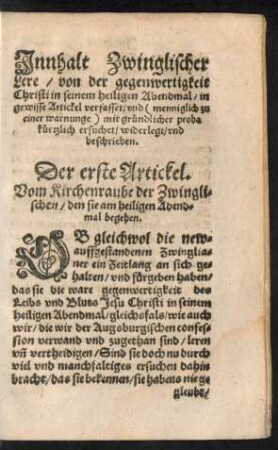 Innhalt Zwinglischer
Lere / von der gegenwertigkeit
Christi in seinem heiligen Abendmal / in
gewisse Artickel verfasset / vnd ( menniglich zu
einer warnunge ) mit gründlicher proba
kürtzlich ersuchet / widerlegt / vnd
beschrieben.
Der erste Artickel.
Vom Kirchenraube der Zwingli-
schen / den sie am heiligen Abend-
mal begehen.
OB gleichwol die new-
auffgestandenen Zwinglia-
ner ein Zeitlang an sich ge-
halten / vnd fürgeben haben /
das sie die ware gegenwertigkeit des
Leibs vnd Bluts Jesu Christi in seinem
heiligen Abendmal / gleichsfals / wie auch
wir / die wir der Augsburgischen confes-
sion verwand vnd zugethan sind / leren
vn̄ vertheidigen / Sind sie doch nu durch
viel vnd manchfaltiges ersuchen dahin
bracht / das sie bekennen / sie habens nie ge-
gleubt /